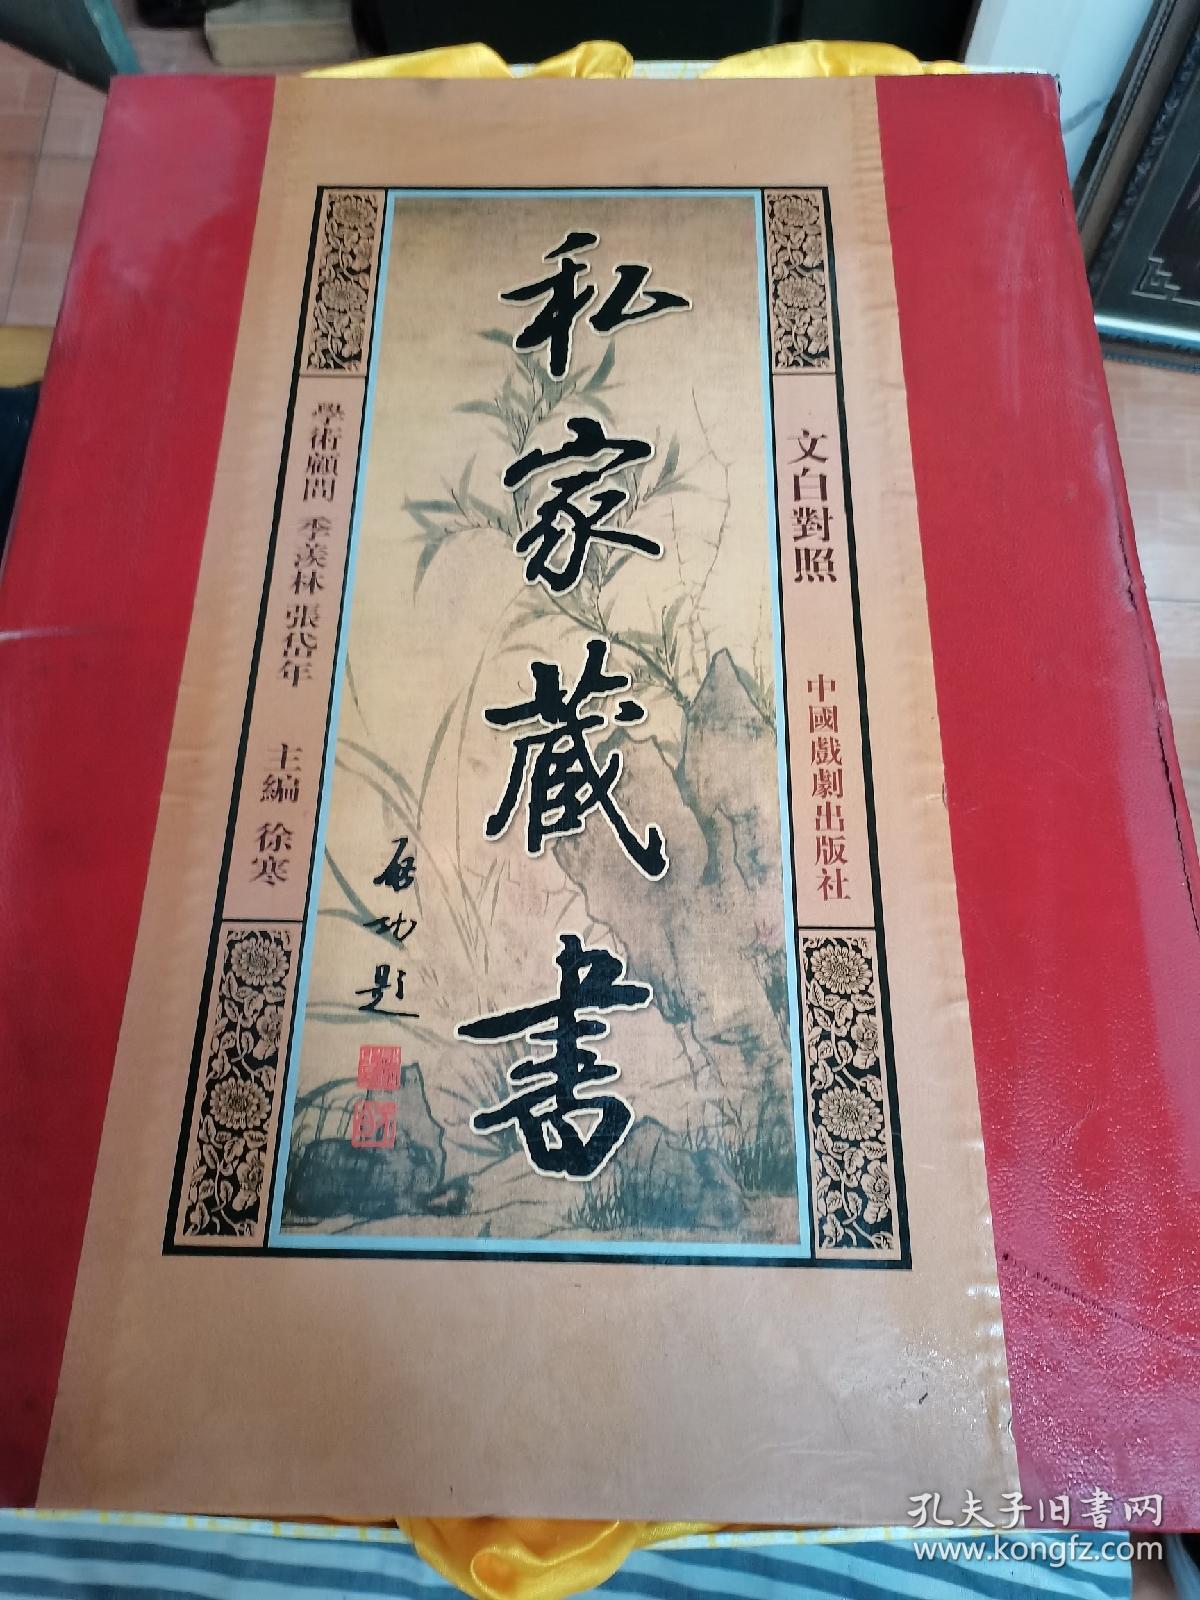 私家藏書
启功题
文白對照
中國戲劇出版社
學術顧問 季羨林 張岱年
主編 徐寒
孔夫子旧書网
www.kongfz.com